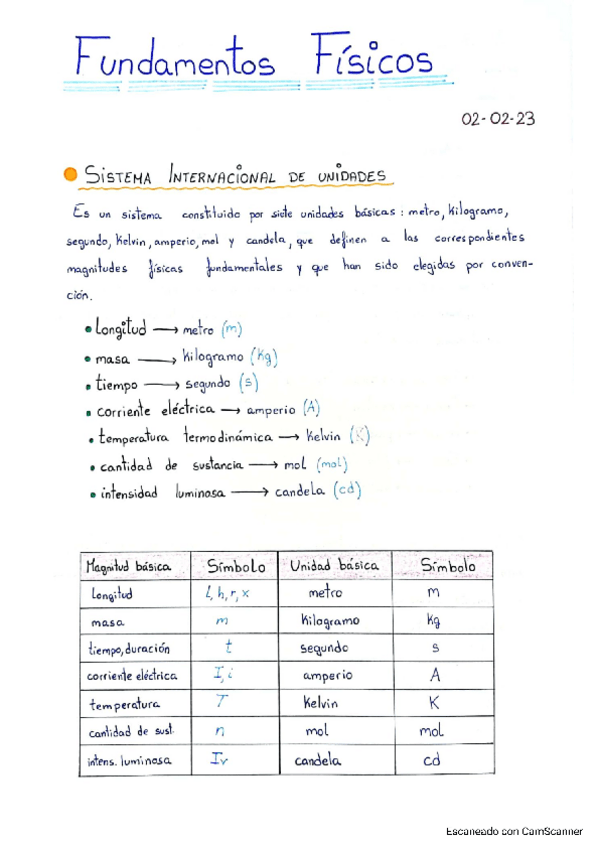 Fundamentos Físicos
02-02-23
SISTEMA INTERNACIONAL DE UNIDADES
Es un sistema constituido por siete unidades básicas: metro, kilogramo,
segundo, kelvin, amperio, mol y candela, que definen a las correspondientes
magnitudes físicas fundamentales y que han sido elegidas por conven-
ción.
• longitud → metro (m)
• masa → kilogramo (kg)
• tiempo → segundo (s)
• corriente eléctrica → amperio (A)
• temperatura termodinámica → kelvin (K)
• cantidad de sustancia → mol (mol)
• intensidad luminosa → candela (cd)
Magnitud básica Símbolo Unidad básica Símbolo
longitud l, h, r, x metro m
masa m kilogramo kg
tiempo, duración t segundo s
corriente eléctrica I, i amperio A
temperatura T kelvin K
cantidad de sust. n mol mol
intens. luminosa Iv candela cd
Escaneado con CamScanner